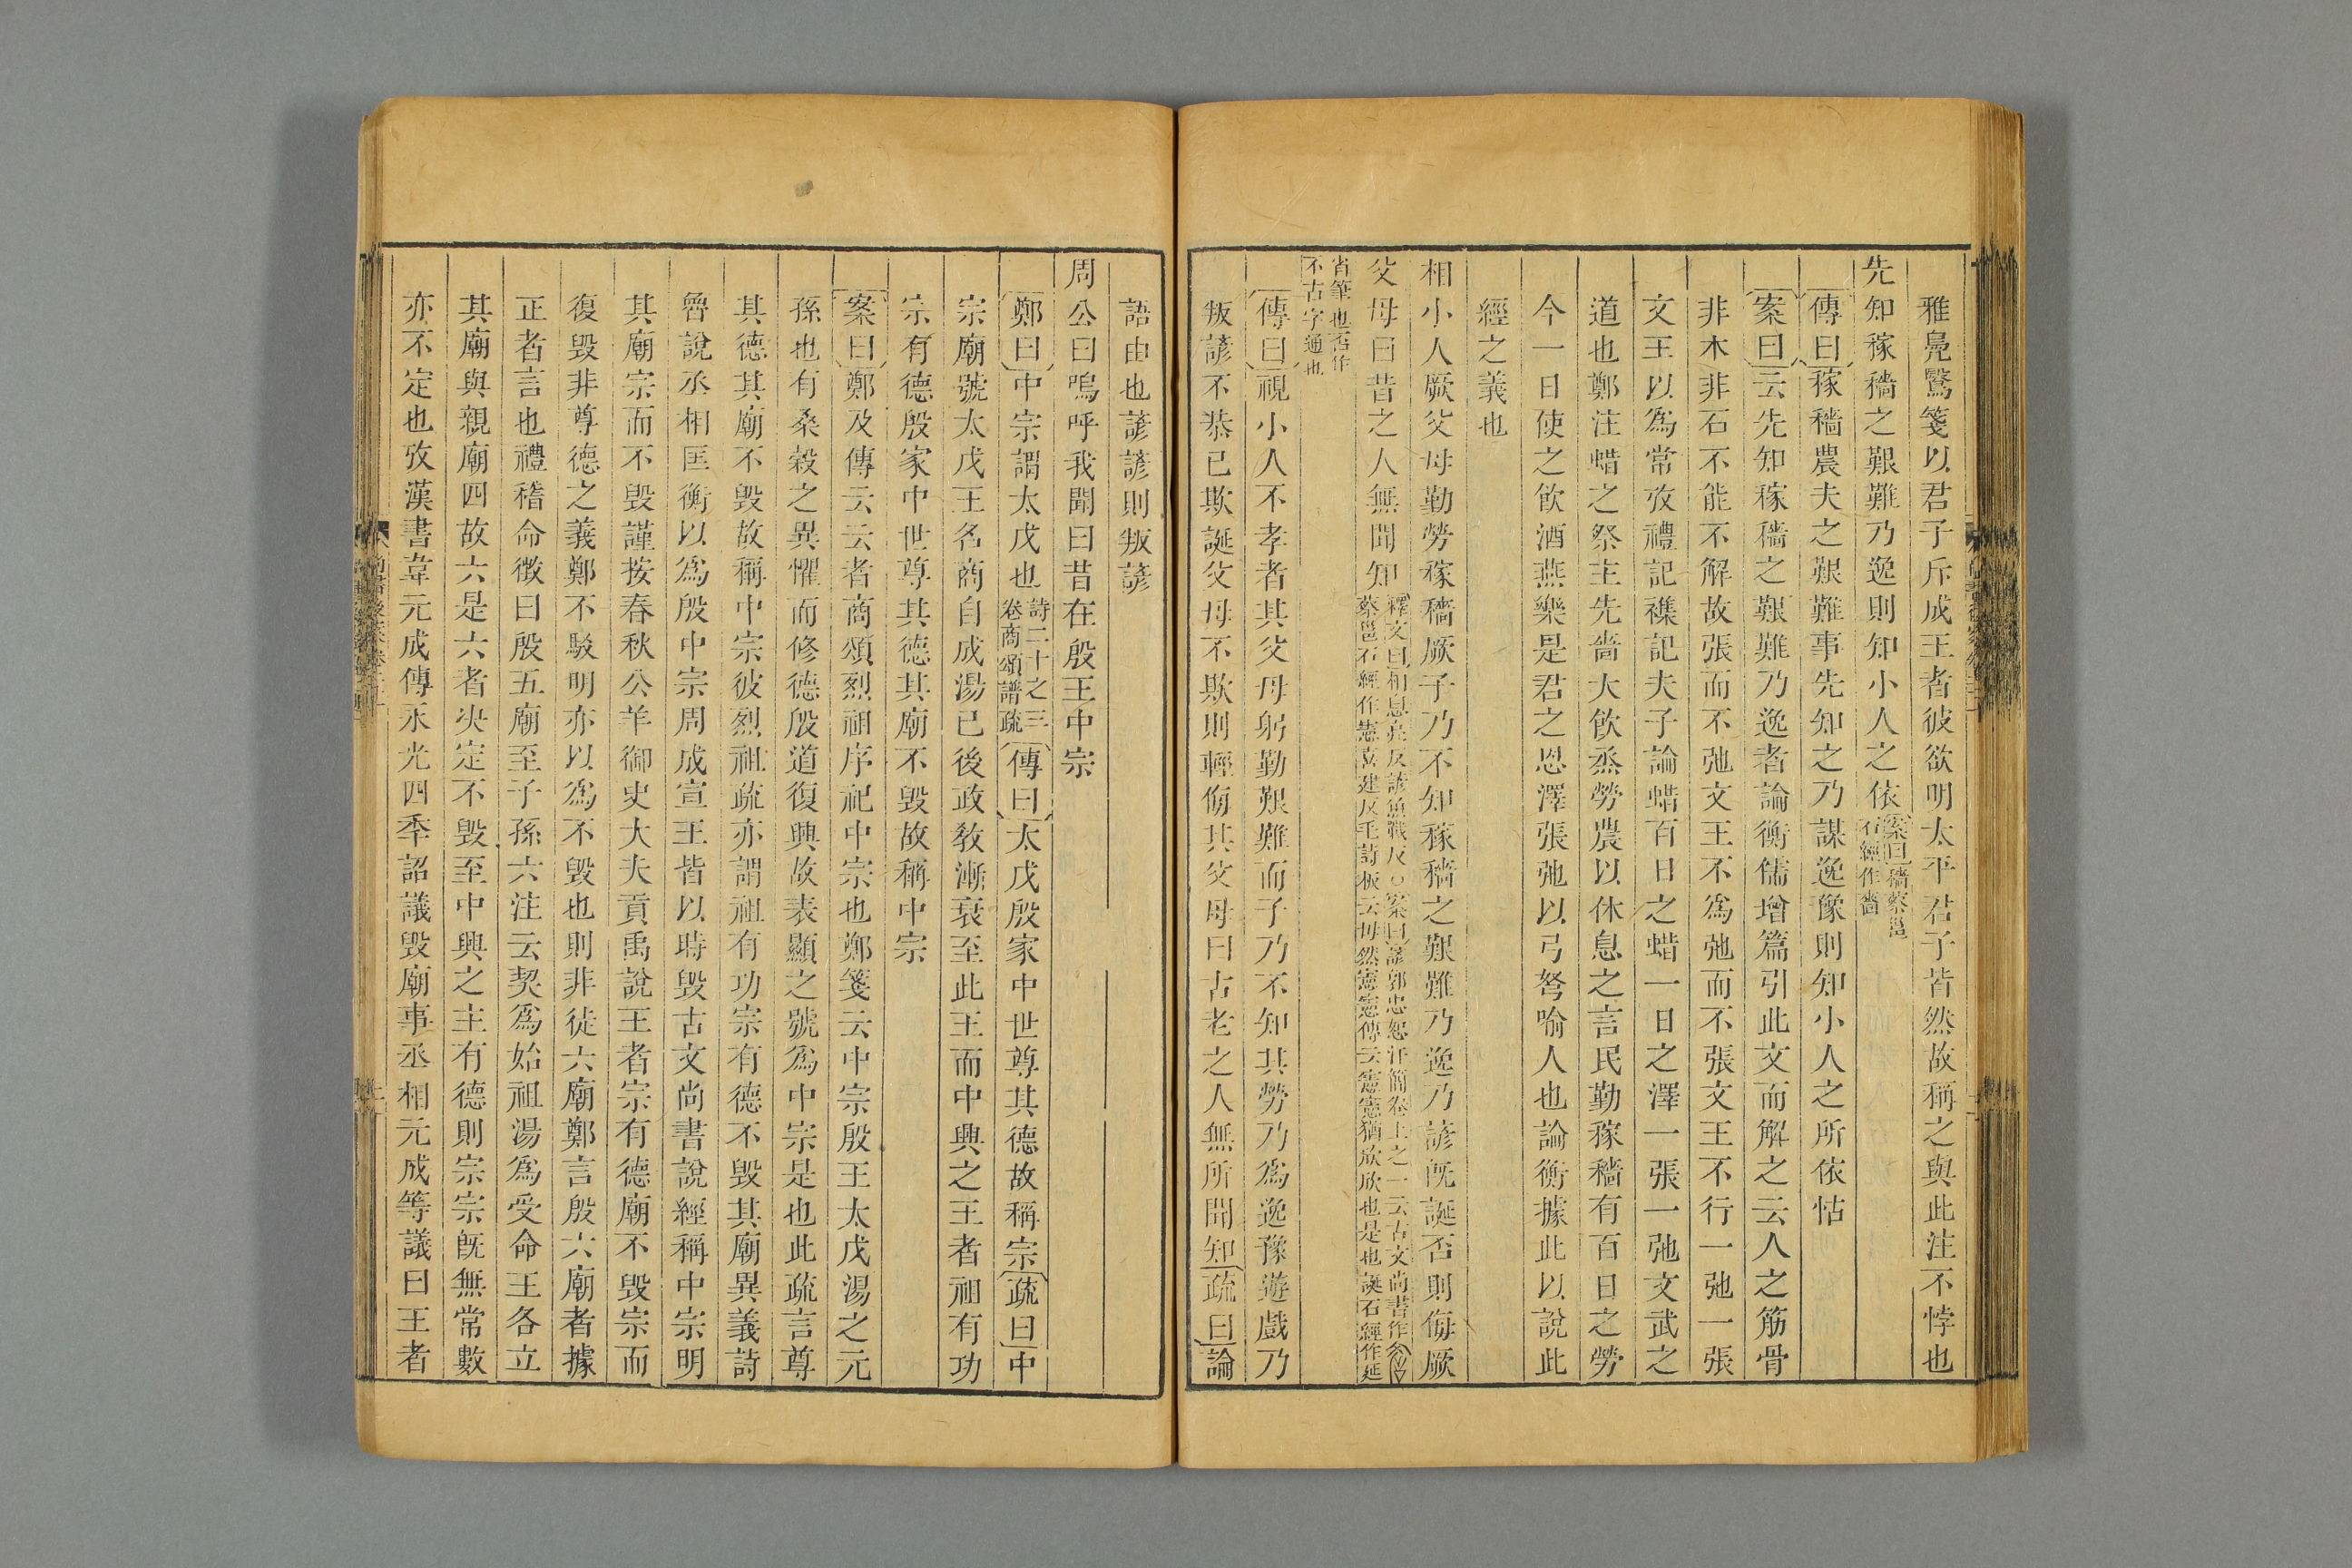 雅鳧鷖箋以君子斥成王者彼欲明太平君子皆然故稱之與此注不悖也
先知稼穡之艱難乃逸則知小人之依案曰穡蔡邕
石經作嗇
傳曰稼穡農夫之艱難事先知之乃謀逸豫則知小人之所依怙
案曰云先知稼穡之艱難乃逸者論衡儒增篇引此文而解之云人之筋骨
非木非石不能不解故張而不弛文王不爲弛而不張文王不行一弛一張
文王以爲常攷禮記襍記夫子論蜡百日之蜡一日之澤一張一弛文武之
道也鄭注蜡之祭主先嗇大飮烝勞農以休息之言民勤稼穡有百日之勞
今一日使之飮酒燕樂是君之恩澤張弛以弓弩喻人也論衡據此以說此
經之義也
相小人厥父母勤勞稼穡厥子乃不知稼穡之艱難乃逸乃諺旣誕否則侮厥
父母曰昔之人無聞知釋文曰相息亮反諺魚戰反○案曰諺郭忠恕汗簡卷上之一云古文尚書作
蔡邕石經作憲 建反毛詩板云毋然憲憲傳云憲憲猶欣欣也是也誕石經作延
省筆也否作
不古字通也
傳曰視小人不孝者其父母躬勤艱難而子乃不知其勞乃爲逸豫遊戲乃
叛諺不恭已欺誕父母不欺則輕侮其父母曰古老之人無所聞知疏曰論
語由也諺諺則叛諺
周公曰嗚呼我聞曰昔在殷王中宗
鄭曰中宗謂太戊也詩二十之三
卷商頌譜疏傳曰太戊殷家中世尊其德故稱宗疏曰中
宗廟號太戊王名商自成湯已後政敎漸衰至此王而中興之王者祖有功
宗有德殷家中世尊其德其廟不毀故稱中宗
案曰鄭及傳云云者商頌烈祖序祀中宗也鄭箋云中宗殷王太戊湯之元
孫也有桑榖之異懼而修德殷道復興故表顯之號爲中宗是也此疏言尊
其德其廟不毀故稱中宗彼烈祖疏亦謂祖有功宗有德不毀其廟異義詩
魯說丞相匡衡以爲殷中宗周成宣王皆以時毀古文尚書說經稱中宗明
其廟宗而不毀謹按春秋公羊御史大夫貢禹說王者宗有德廟不毀宗而
復毀非尊德之義鄭不駁明亦以爲不毀也則非徒六廟鄭言殷六廟者據
正者言也禮稽命徵曰殷五廟至子孫六注云契爲始祖湯爲受命王各立
其廟與親廟四故六是六者決定不毀至中興之主有德則宗宗旣無常數
亦不定也攷漢書韋元成傳永光四年詔議毀廟事丞相元成等議曰王者